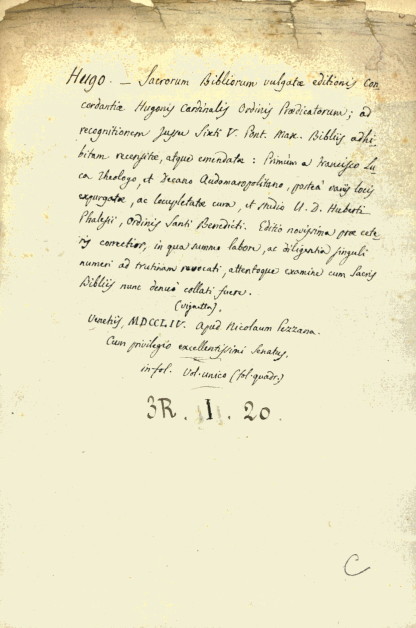 Hugo. — Sacrorum Bibliorum vulgatæ editionis Con
cordantiæ Hugonis Cardinalis Ordinis Prædicatorum; ad
recognitionem Jussu Sixti V. Pont. Max. Bibliis adhi
bitam recensitæ, atque emendatæ: Primùm a Francisco Lu
ca Theologo, et Decano Audomaropolitano, posteà variis locis
expurgatæ, ac locupletatæ cura, et studio U. D. Huberti
Phalesii, Ordinis Santi Benedicti. Editio novissima præ cete
ris correctior, in qua summo labore, ac diligentia singuli
numeri ad trutinam revocati, attentoque examine cum Sacris
Bibliis nunc denuò collati fuere.
(vignetta).
Venetiis, MDCCLIV. Apud Nicolaum Pezzana.
Cum privilegio excellentissimi Senatus.
in-fol. Vol. unico (fol. quadr.)
3R. I. 20.
C